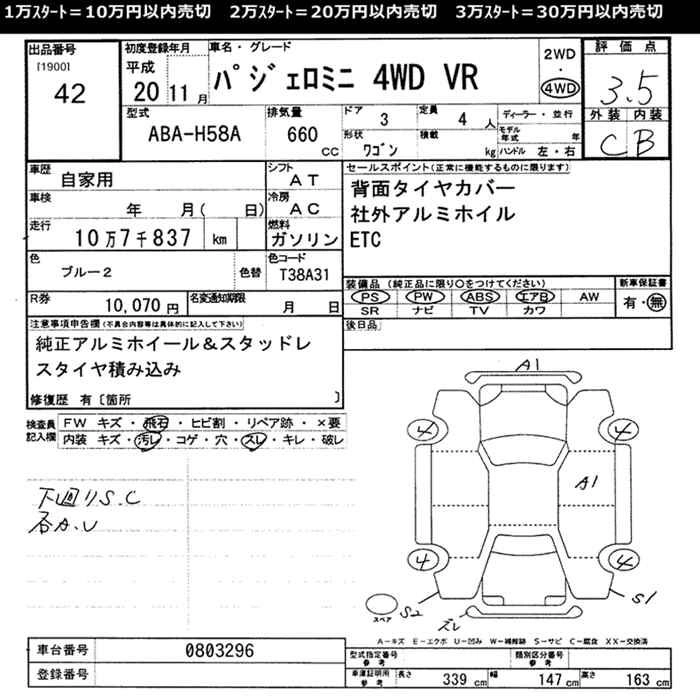 1万スタート＝10万円以内売切　2万スタート＝20万円以内売切　3万スタート＝30万円以内売切
出品番号
[1900]
42
初度登録年月
平成
20 11 月
車名・グレード
パジェロミニ 4WD VR
2WD
・
4WD
評価点
3.5
外装 内装
C B
型式
ABA-H58A
排気量
660
cc
ドア
3
定員
4 人
形状
ワゴン
積載
kg
ディーラー・並行
モデル年式 年
ハンドル 左・右
車歴
自家用
シフト
AT
車検
年 月( 日)
冷房
AC
走行
10万7千837 km
燃料
ガソリン
色
ブルー2
色替
色コード
T38A31
R券
10,070 円
名変通知期限
月 日
セールスポイント(正常に機能するものに限ります)
背面タイヤカバー
社外アルミホイル
ETC
装備品 (純正品に限り○をつけてください)
PS PW ABS エアB AW
SR ナビ TV カワ
新車保証書
有・無
後日品
注意事項申告欄(不具合内容等は具体的に記入して下さい)
純正アルミホイール＆スタッドレ
スタイヤ積み込み
修復歴 有〔箇所 〕
検査員記入欄
FW キズ・飛石・ヒビ割・リペア跡・×要
内装 キズ・汚レ・コゲ・穴・スレ・キレ・破レ
下廻りS.C
A.U
A1
4 4
A1
4 4
S2
ズレ
S1
スペア
A-キズ E-エクボ U-凹み W-補修跡 S-サビ C-腐食 XX-交換済
車台番号
0803296
登録番号
型式指定番号
参考
類別区分番号
参考
車庫証明用
参考
長さ 339 cm
幅 147 cm
高さ 163 cm